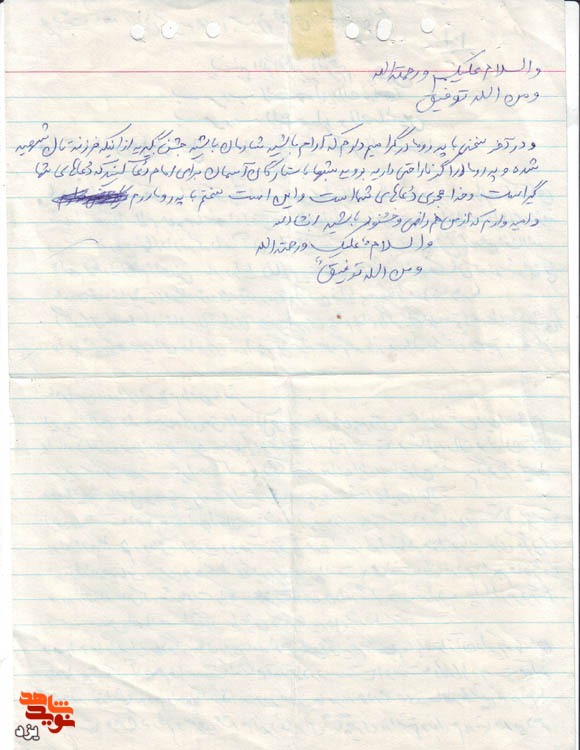 والسلام علیکم ورحمته الله
ومن الله توفیق
و در آخر سخنی با پدر و مادر گرامیم دارم که آرام باشید شادمان باشید جشن بگیرید از اینکه فرزندتان شهید
شده و پدر و مادر اگر ناراحتی دارید بروید شبها با ستارگان آسمان برای امام دعا کنید که دعاهای شما
گیراست و خدا مجری دعاهای شما است و این است سخنم با پدر و مادرم
و امید وارم که از من هم راضی و خشنود باشید انشاءالله
والسلام علیک ورحمته الله
ومن الله توفیق
شاهد
نوید
یزد